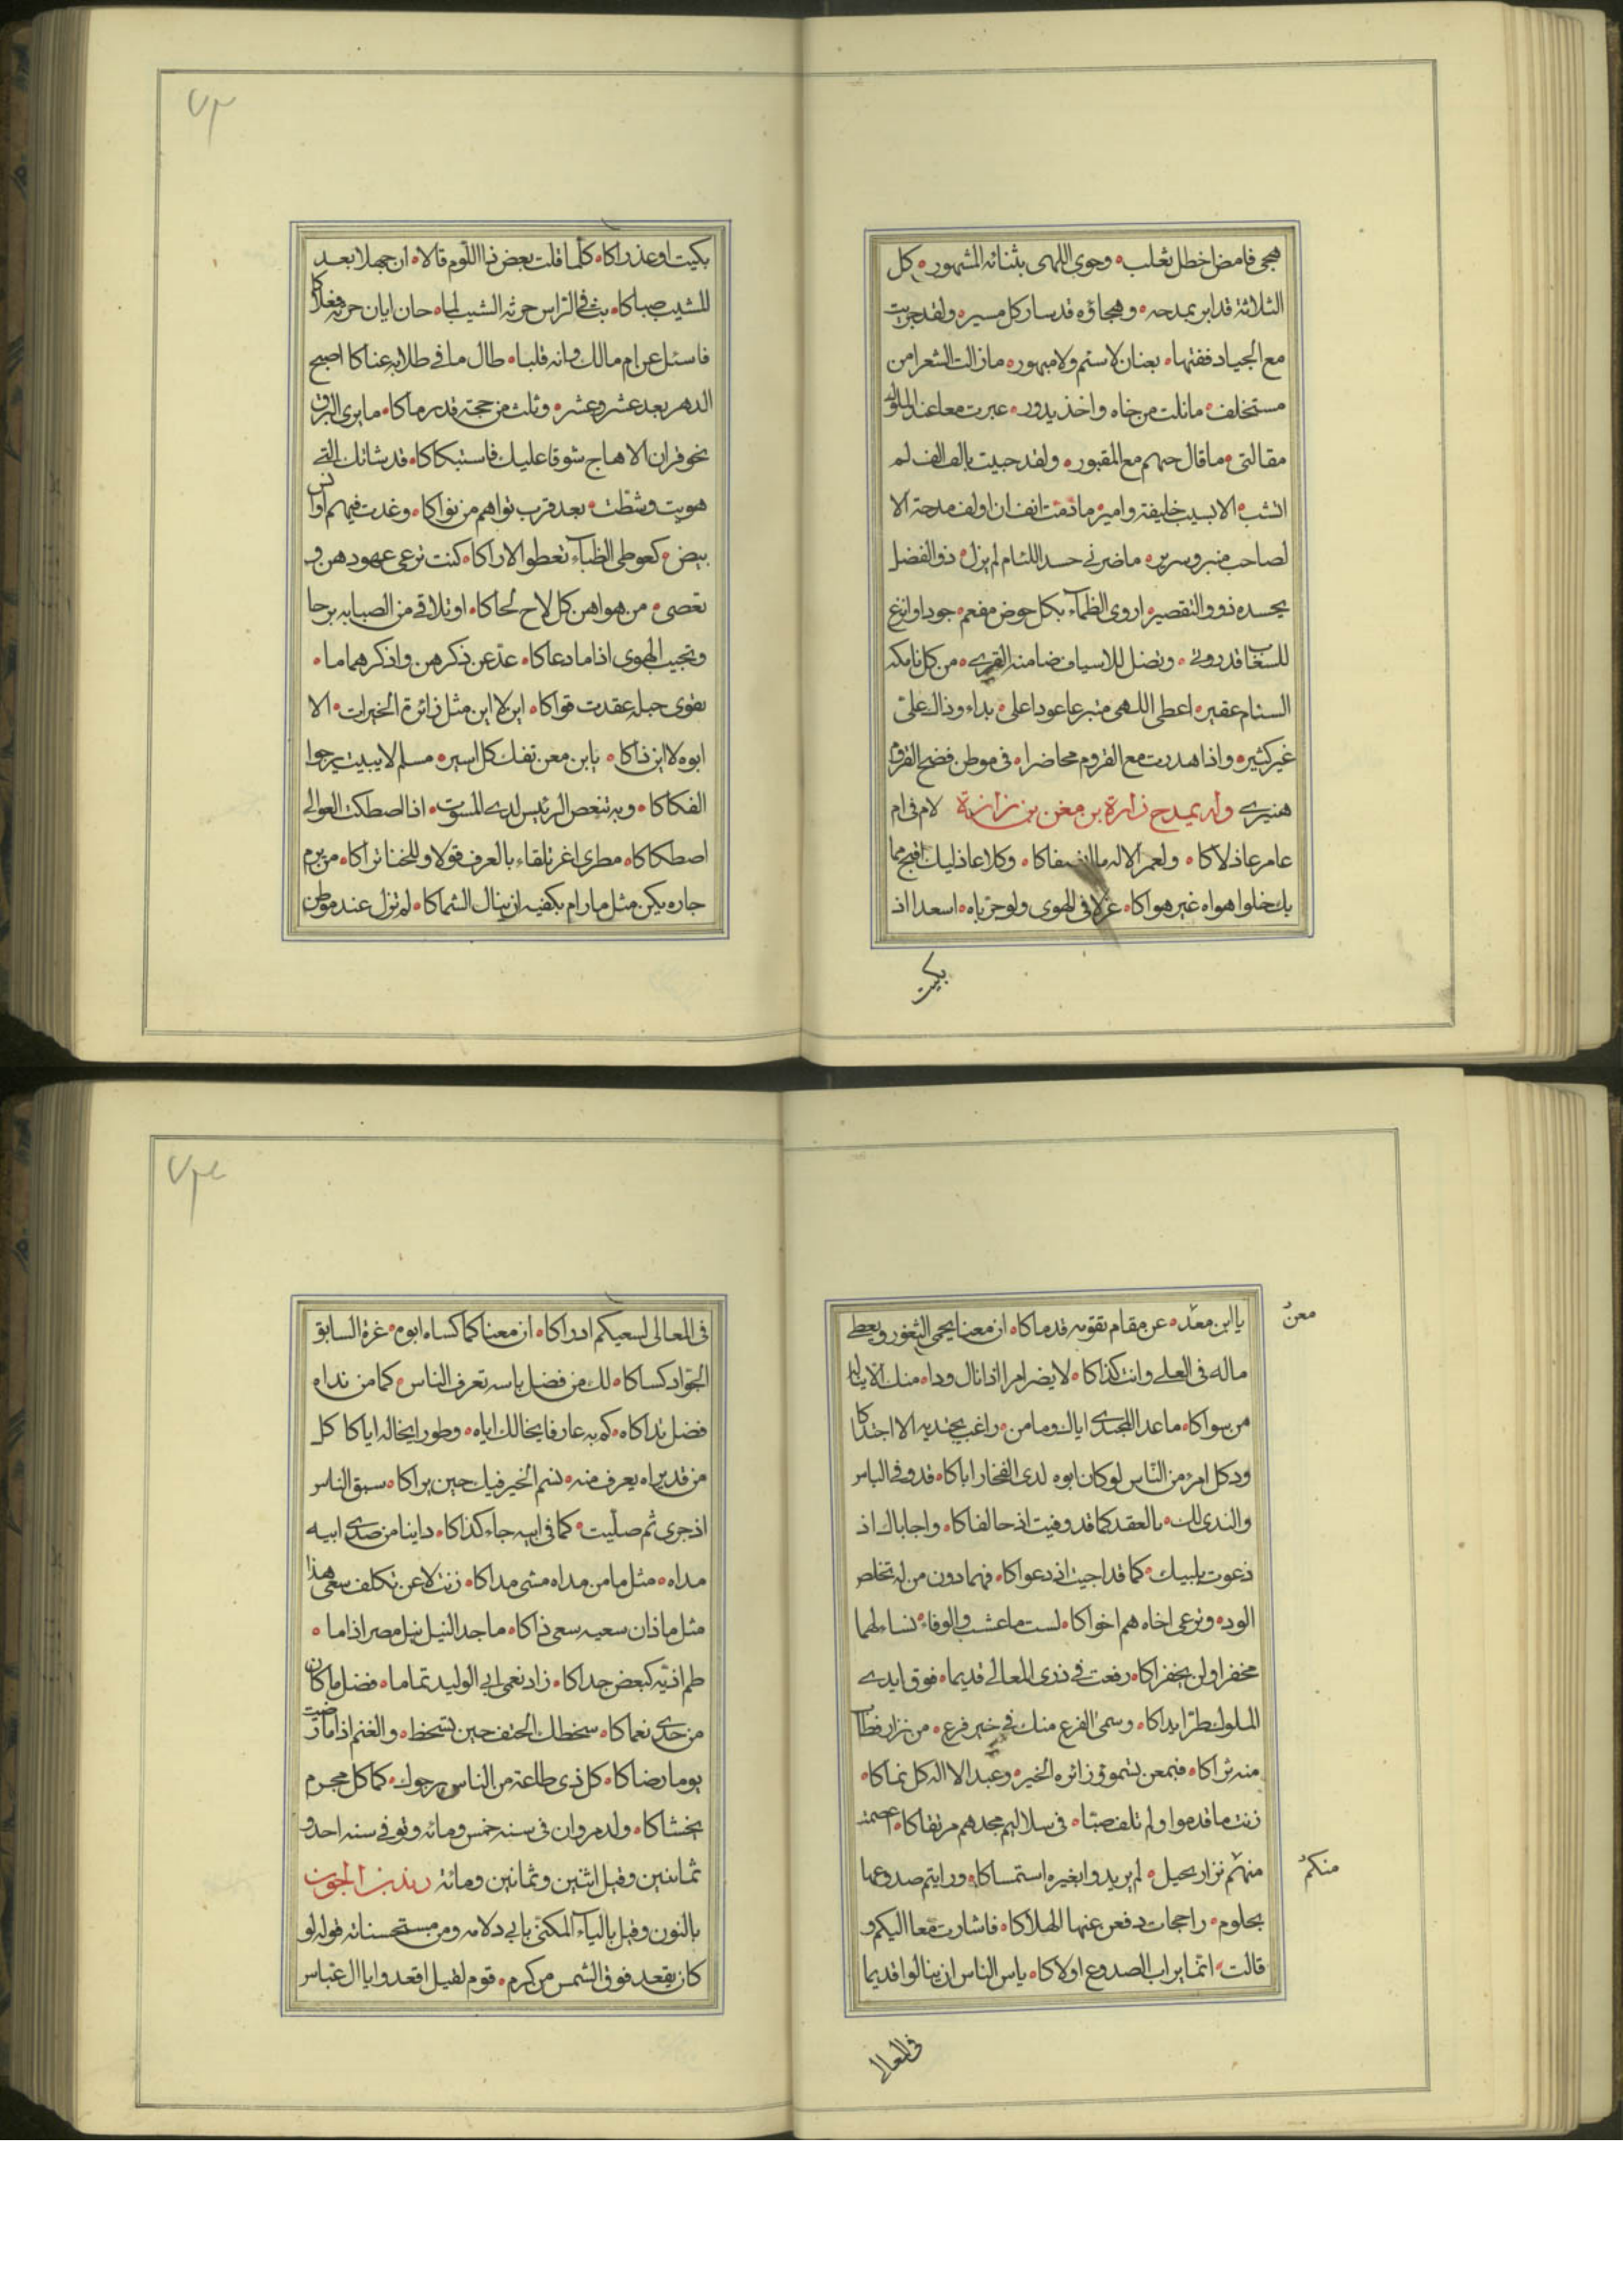 هجى فامض اخطل تغلب • وحوى اللهى بثنائه المشهور • كل
الثلاثة قد ابر بمدحه • وهجاؤه قد سار كل مسير • ولقد جريت
مع الجياد ففتها • بعنان لا سئم ولا مبهور • ما زالت الشعرا من
مستخلف • ما نلت من جاه واخذ بدور • عبرت معا عند الملوك
مقالتى • ما قال حيهم مع المقبور • ولقد حبيت بالف الف لم
اثب • الا بسيب خليفة وامير • ما ذقت انف ان اولف مدحة الا
لصاحب منبر وسرير • ما ضرنى حسد اللئام لم يزل • ذو الفضل
يحسده ذوو التقصير • اروى الظماء بكل حوض مفعم • جودا واترع
للسغاب قدورى • وتضل للاسياف ضامنة القرى • من كل تامكة
السنام عقير • اعطى اللهى متبرعا عودا على • بداء وذاك على
غير كثير • واذا هدرت مع القروم محاضرا • فى موطن فضح القروم
هديرى وله يمدح زائرة بن معن بن زائدة لام فى ام
عامر عاذلاكا • ولعمر الاله ما انصفاكا • وكلا عاذليك افبح مما
بك خلوا هواه غير هواكا • عذلا فى الهوى ولو جرباه • اسعدا اذ
بكيت
٧٣
بكيت او عذراكا • كلما قلت بعض ذا اللوم قالا • ان جهلا بعد
للشيب صباكا • بث فى الراس حرثه الشيب لما • حان ايان حرثه فعلاكا
فاسئل عن ام مالك وانه قلبا • طال ما فى طلابه عناكا اصبح
الدهر بعد عشر وعشر • وثلث من حجة قد رماكا • ما يرى البرق
نحو فران الا هاج شوقا عليك فاستبكاكا • قد شاتك التى
هويت وشطت • بعد قرب نواهم من نواكا • وغدت فيهم اوانس
بيض • كعوطى الظباء تعطو الاراكا • كنت ترعى عهودهن و
تعصى • من هواهن كل لاح لحاكا • او تلاقى من الصبابه برحا
وتجيب الهوى اذا ما دعاكا • عد عن ذكرهن واذكر هماما •
بقوى حبله عقدت قواكا • ابن لا ابن مثل زائرة الخيرات • الا
ابوه لا ابن ذاكا • يابن معن تفك كل اسير • مسلم لا يبيت يرجوا
الفكاكا • وبه تنعص الرئيس لدى الموت • اذا اصطكت العوالى
اصطكاكا • مطرى اغر تلقاء بالعرف قولا وللخنا تراكا • من يرم
جاره يكن مثل ما رام بكفيه ان ينال الشماكا • لم تزل عند موطن
معن
يا ابن معد • عن مقام تقوته قدماكا • ان معنا يحمى الثغور ويعطى
ماله فى العلى وانت كذاكا • لا يضر امرا اذا نال ودا • منك الا يناله
من سواكا • ما عدا المجتدى اياك وما من • راغب يجتديه الا اجتداكا
ود كل امرء من الناس لو كان ابوه لدى الفخار اباكا • قد وفى الباس
والندى لك • بالعقد كما قد وفيت اذ حالفاكا • واجاباك اذ
دعوت بلبيك • كما قد اجيت اذ دعواكا • فهما دون من له تخلص
الود • وترعى اخاه هم اخواكا • لست ما عشت والوفاء سناء لهما
مخفرا ولن يخفراكا • رفعت فى ذرى المعالى قديما • فوق ايدى
الملوك طرا يداكا • وسمى الفرع منك فى خير فرع • من نزار فطاب
منه ثراكا • فبمعن تسمو وزائره الخير • وعبد الا اله كل نماكا •
زنت ما قدموا ولم تلف صبا • فى سلاليم مجدهم مرتقاكا • اعصمة
منهم نزار بحيل • لم يريدوا بغيره استمساكا • ورايتم صدوعها
منكم
بحلوم • راجحات دفعن عنها الهلاكا • فاشارت معا اليكم و
قالت • انما يراب الصدوع اولاكا • ياس الناس ان ينالوا قديما
فى المعالى
٧٤
فى المعالى لسعيكم ادراكا • ان معنا كما كساه ابوه • غرة السابق
الجواد كساكا • لك من فضل باسه تعرف الناس • كما من نداه
فضل نداكا • كم به عارفا يخالك اياه • وطورا يخاله اياكا كل
من قد يراه يعرف منه • نسم الخير فيك حين يراكا • سبق الناس
اذ جرى ثم صليت • كما فى ابيه جاء كذاكا • داينا من صدى ابيه
مداه • مثل ما من مداه مشى مداكا • زنت لا عن تكلف سعى هذا
مثل ما ذان سعيه سعى ذاكا • ما جد النيل نيل مصر اذا ما •
طم اذيه كبعض جداكا • زاد نعمى ابى الوليد تماما • فضل ما كان
من جدى نعماكا • سخطك الحتف حين تسخط • والغنم اذا ما رضيت
يوما رضاكا • كل ذى طاعة من الناس يرجوك • كما كل مجرم
يخشاكا • ولد مروان فى سنه خمس ومائه وتوفى سنه احدو
ثمانين وقيل اثنين وثمانين ومائة زند بن الجون
بالنون وقيل بالياء المكنى بابى دلامه ومن مستحسناته قوله لو
كان يقعد فوق الشمس من كرم • قوم لقيل اقعدوا يا ال عباس